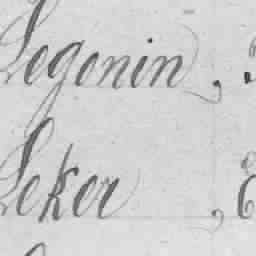 Legonin,
Leker,